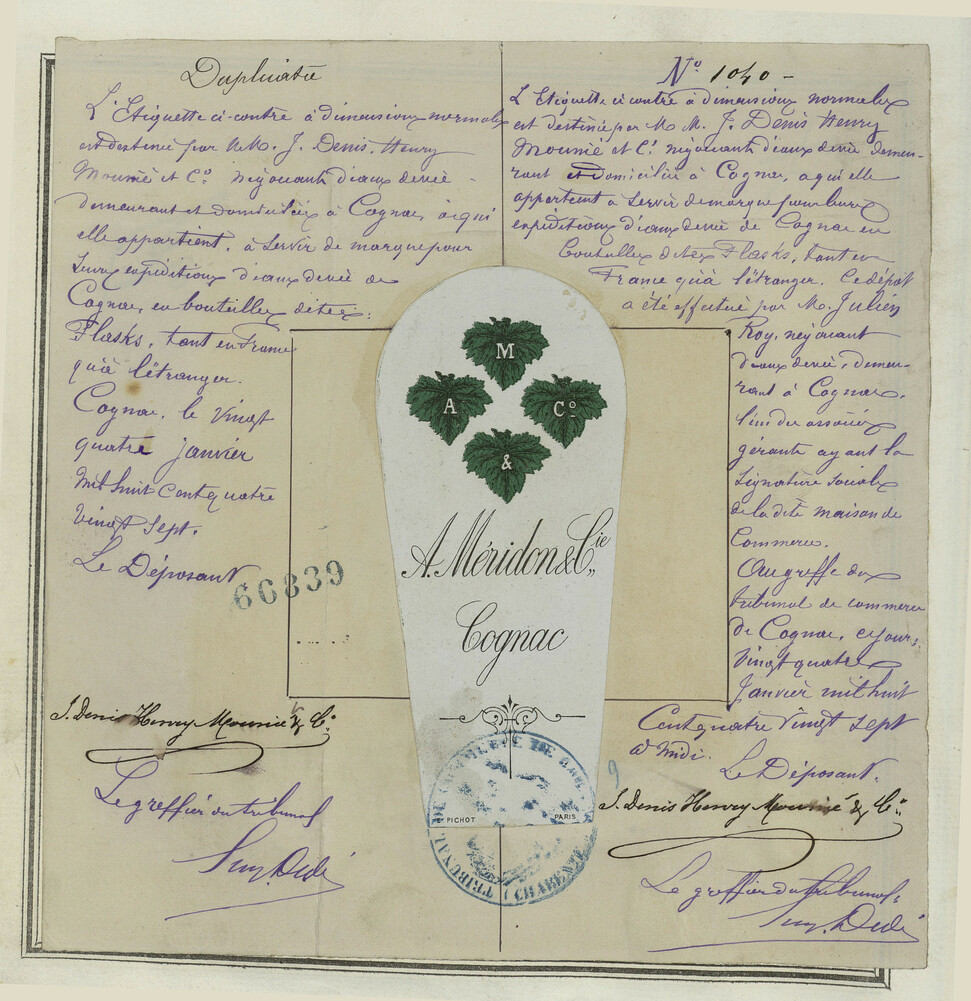 Duplicata
L'Etiquette ci-contre à dimensions normales
est destinée par M.M. J. Denis. Henry
Mounié et Co. négociants d'eaux devie
demeurant et domiciliés à Cognac, à qui
elle appartient, à servir de marque pour
leurs expéditions d'eaux devie de
Cognac, en bouteilles dites:
Flasks, tant en France
qu'à l'étranger.
Cognac, le vingt
quatre janvier
mil huit cent quatre
vingt sept.
Le Déposant
66839
J. Denis Henry Mounié & Co.
Le greffier du tribunal
No 1040 -
L'Etiquette ci contre à dimensions normales
est destinée par M M. J. Denis Henry
Mounié et Co. négociants d'eaux devie demeu-
rant et domiciliés à Cognac, a qui elle
appartient à servir de marque pour leurs
expéditions d'eaux devie de Cognac en
bouteilles dites Flasks, tant en
France qu'à l'étranger. Ce dépôt
a été effectué par M. Julien
Roy, négociant
d'eaux devie, demeu-
rant à Cognac,
l'un des associés
gérants ayant la
signature sociale
de la dite maison de
Commerce.
Au greffe du
tribunal de commerce
de Cognac, ce jour,
vingt quatre
Janvier mil huit
Cent quatre vingt sept
à midi.
Le Déposant.
J. Denis Henry Mounié & Co.
Le greffier du tribunal
M
A
Co
&
A. Méridon & Cie
Cognac
PICHOT
PARIS
TRIBUNAL DE COMMERCE DE COGNAC
(CHARENTE)
9